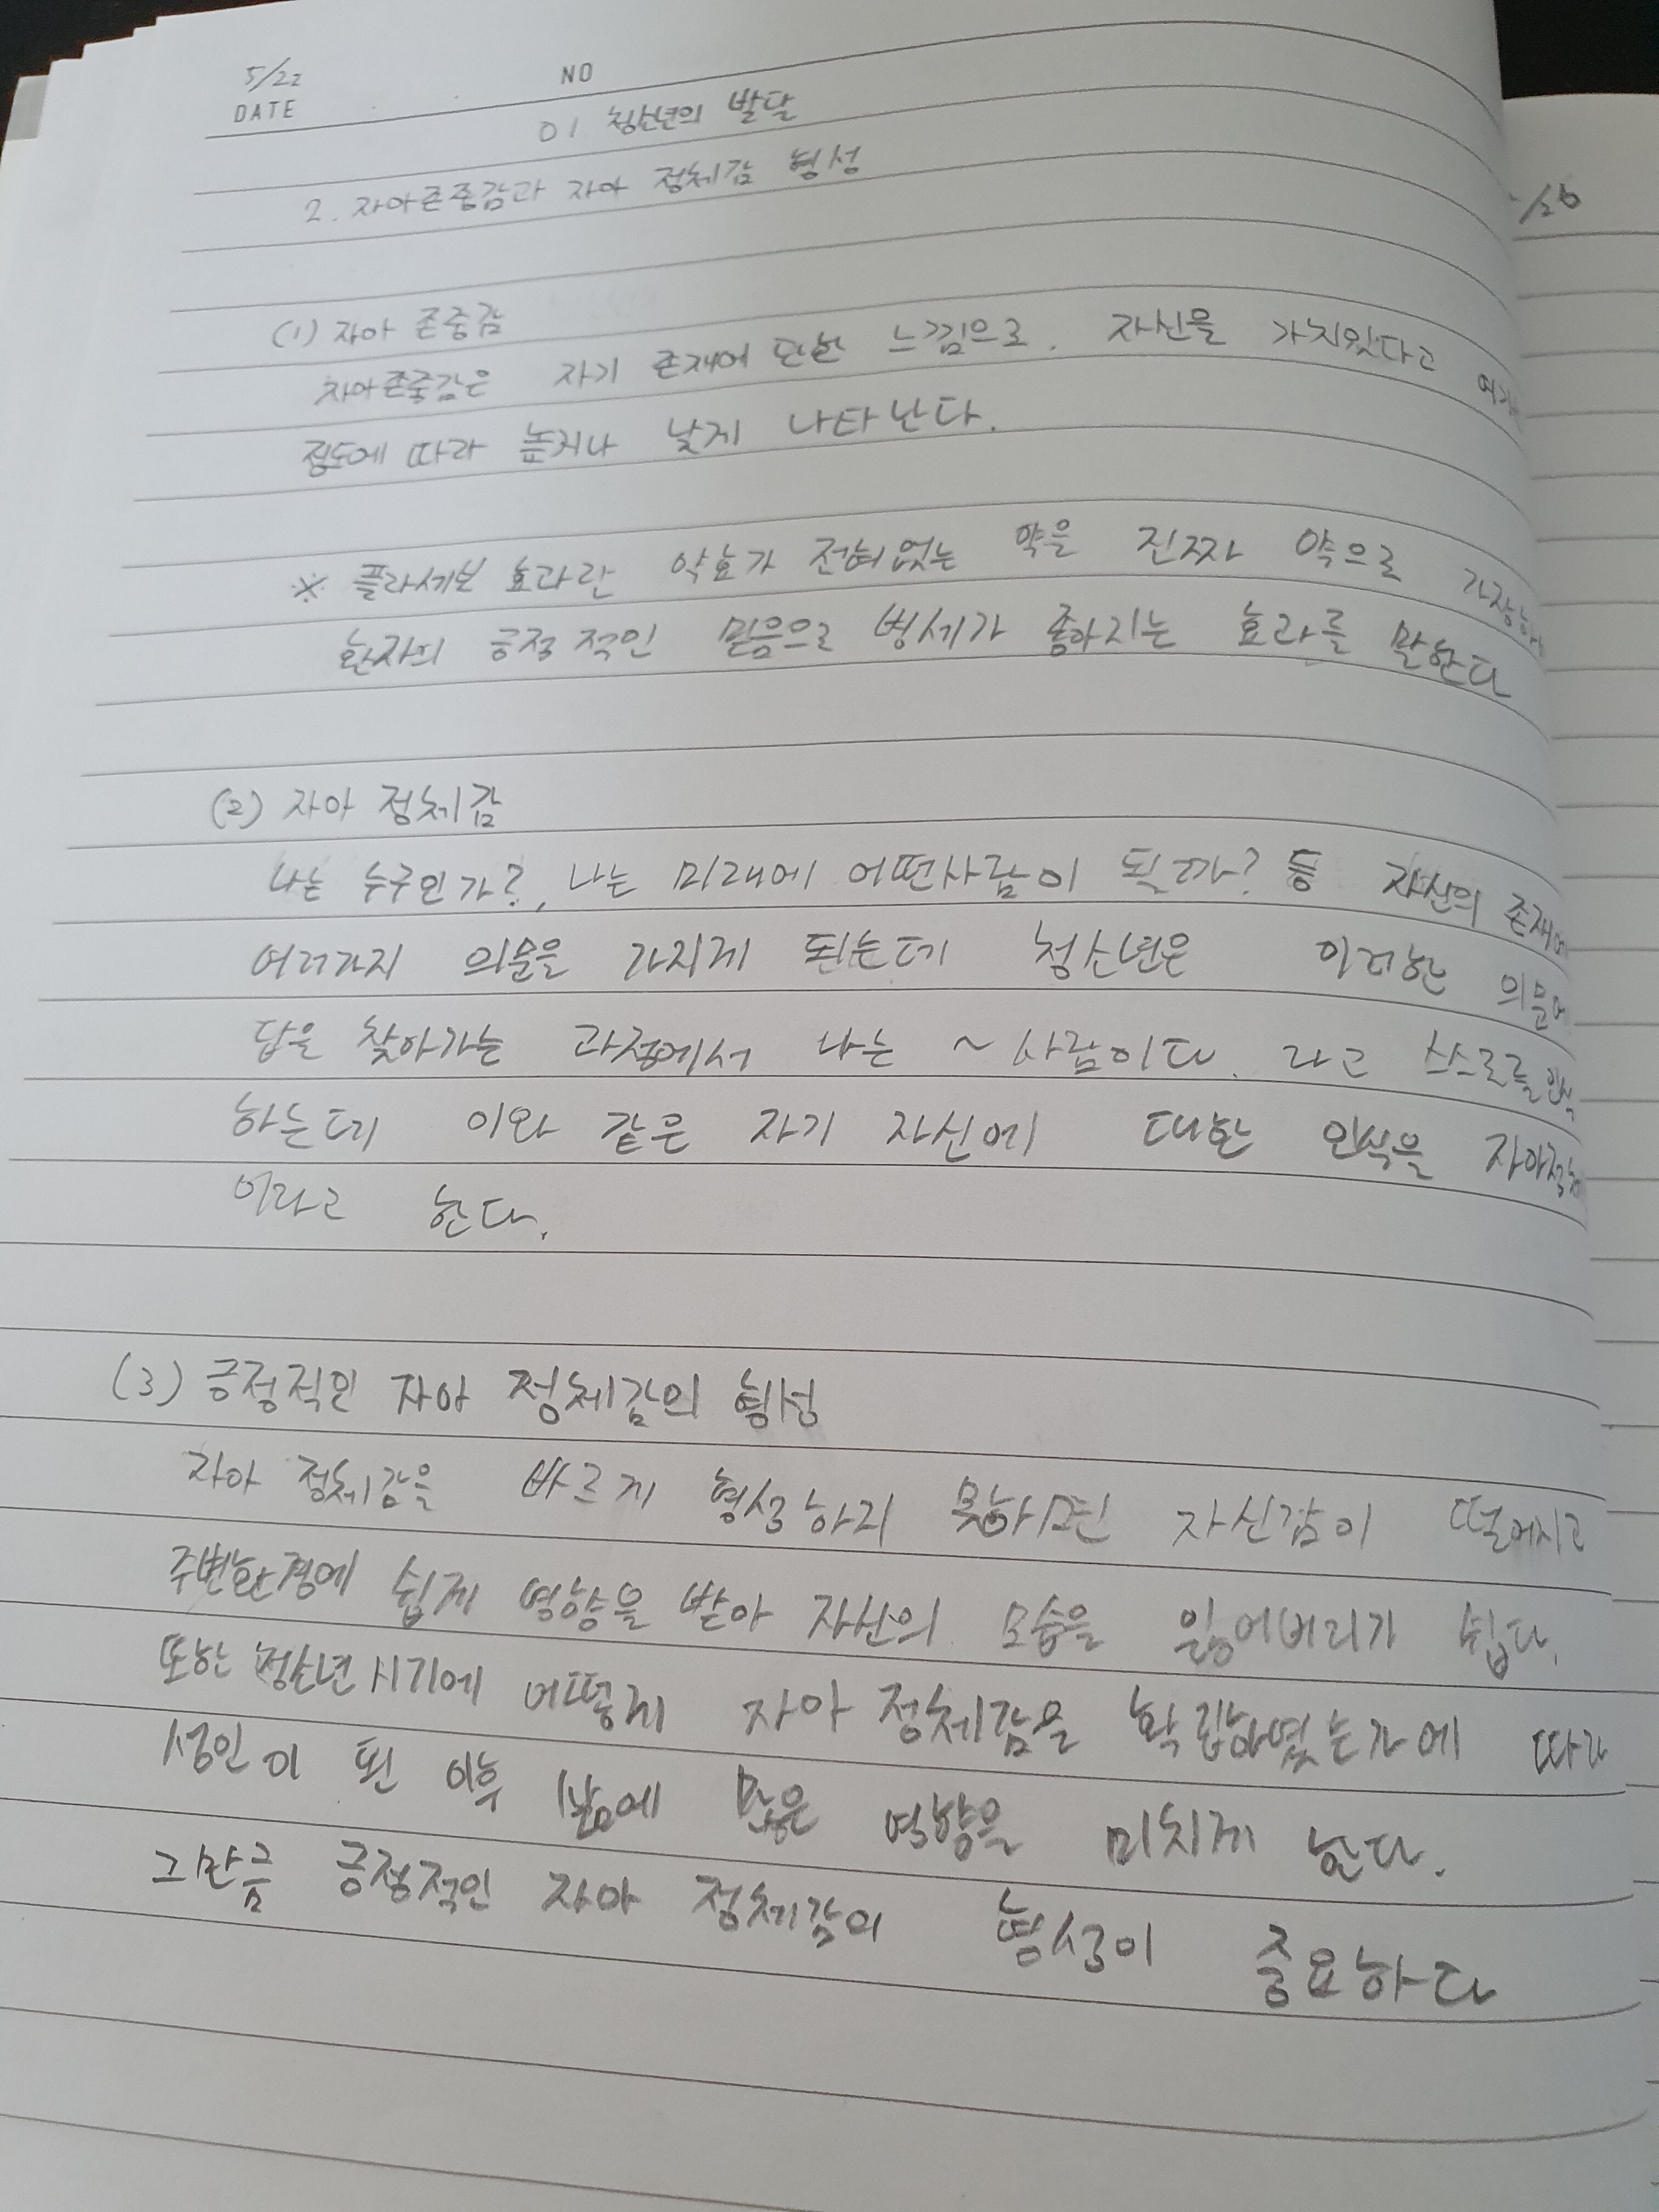 5/22
DATE
NO
01 청소년의 발달
2. 자아존중감과 자아 정체감 형성
(1) 자아 존중감
자아존중감은 자기 존재에 대한 느낌으로. 자신을 가치있다고
정도에 따라 높거나 낮게 나타난다.
※ 플라세보 효과란 약효가 전혀없는 약을 진짜 약으로 가장하여
환자의 긍정적인 믿음으로 병세가 좋아지는 효과를 말한다
(2) 자아 정체감
나는 누구인가?, 나는 미래에 어떤사람이 될까? 등 자신의 존재에
여러가지 의문을 가지게 되는데 청소년은 이러한 의문에
답을 찾아가는 과정에서 나는 ~ 사람이다. 라고 스스로를 인식
하는데 이와 같은 자기 자신에 대한 인식을
이라고 한다.
(3) 긍정적인 자아 정체감의 형성
자아 정체감을 바르게 형성하지 못하면 자신감이 떨어지고
주변환경에 쉽게 영향을 받아 자신의 모습을 잃어버리기 쉽다.
또한 청소년시기에 어떻게 자아 정체감을 확립하였는가에 따라
성인이 된 이후 삶에 많은 영향을 미치게 된다.
그만큼 긍정적인 자아 정체감의 형성이 중요하다
/26